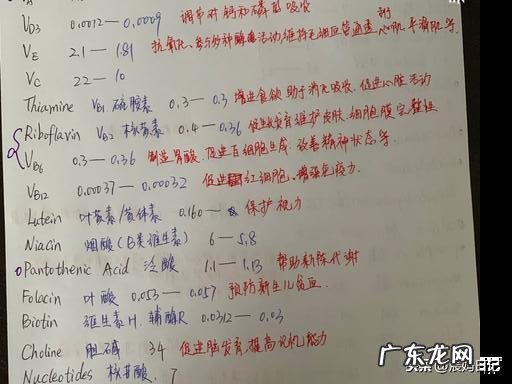 VD3 0.0072 — 0.0009 调节对钙和磷的吸收
VE 2.1 — 1.81 抗氧化、参与多种酶活动,维持毛细血管通透 心肌平滑肌等.
VC 22 — 10
Thiamine VB1 硫胺素 0.3 — 0.3 增进食欲 助于消化吸收, 促进心脏活动
Riboflavin VB2 核黄素 0.4 — 0.36 促进发育维护皮肤、细胞膜完整性
VB6 0.3 — 0.36 制造胃酸. 促进白细胞生成. 改善精神状态等.
VB12 0.00037 — 0.00032 促进红细胞、增强免疫力.
Lutein 叶黄素/黄体素 0.160 — 保护视力
Niacin 烟酸 (B类维生素) 6 — 5.8
Pantothenic Acid 泛酸 1.1 — 1.13 帮助新陈代谢
Folacin 叶酸 0.053 — 0.057 预防新生儿贫血.
Biotin 维生素H. 辅酶R 0.0312 — 0.03
Choline 胆碱 34 促进脑发育,提高记忆能力
Nucleotides 核苷酸. 7
头条 日记
广东龙网